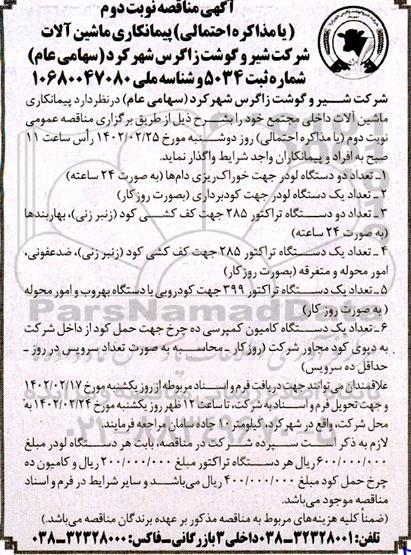 آگهی مناقصه نوبت دوم
(با مذاکره احتمالی) پیمانکاری ماشین آلات
شرکت شیر و گوشت زاگرس شهر کرد (سهامی عام)
شماره ثبت ۵۰۳۴ و شناسه ملی ۱۰۶۸۰۰۴۷۰۸۰
شرکت شیر و گوشت زاگرس شهر کرد (سهامی عام) در نظر دارد پیمانکاری
ماشین آلات داخلی مجتمع خود را بشرح ذیل از طریق برگزاری مناقصه عمومی
نوبت دوم (با مذاکره احتمالی) روز دوشنبه مورخ ۱۴۰۲/۰۲/۲۵ رأس ساعت ۱۱
صبح به افراد و پیمانکاران واجد شرایط واگذار نماید.
۱ـ تعداد دو دستگاه لودر جهت خوراک‌ریزی دام‌ها (به صورت ۲۴ ساعته)
۲ـ تعداد یک دستگاه لودر جهت کودبرداری (بصورت روز کار)
۳ـ تعداد دو دستگاه تراکتور ۲۸۵ جهت کف کشی کود (زنبر زنی)، بهاربندها
(به صورت ۲۴ ساعته)
۴ـ تعداد یک دستگاه تراکتور ۲۸۵ جهت کف کشی کود (زنبر زنی)، ضدعفونی،
امور محوله و متفرقه (بصورت روز کار)
۵ـ تعداد یک دستگاه تراکتور ۳۹۹ جهت کودروبی با دستگاه بهروب و امور محوله
(به صورت روز کار)
۶ـ تعداد یک دستگاه کامیون کمپرسی ده چرخ جهت حمل کود از داخل شرکت
به دپوی کود مجاور شرکت (روز کار ـ محاسبه به صورت تعداد سرویس در روز ـ
حداقل ده سرویس)
علاقمندان می توانند جهت دریافت فرم و اسناد مربوطه از روز یکشنبه مورخ ۱۴۰۲/۰۲/۱۷
و جهت تحویل فرم و اسناد به شرکت، تا ساعت ۱۲ ظهر روز یکشنبه مورخ ۱۴۰۲/۰۲/۲۴ به
محل شرکت، واقع در شهر کرد، کیلومتر ۱۰ جاده سامان مراجعه فرمایند.
لازم به ذکر است سپرده شرکت در مناقصه، بابت هر دستگاه لودر مبلغ
۶۰۰/۰۰۰/۰۰۰ ریال هر دستگاه تراکتور مبلغ ۲۰۰/۰۰۰/۰۰۰ ریال و کامیون ده
چرخ حمل کود مبلغ ۴۰۰/۰۰۰/۰۰۰ ریال می‌باشد و سایر شرایط در فرم و اسناد
مناقصه موجود می‌باشد.
(ضمنا کلیه هزینه‌های مربوط به مناقصه مذکور بر عهده برندگان مناقصه می‌باشد.)
تلفن: ۳۲۳۲۸۰۰۱-۰۳۸ داخلی ۳ بازرگانی ـ فاکس: ۳۲۳۲۸۰۰۰-۰۳۸